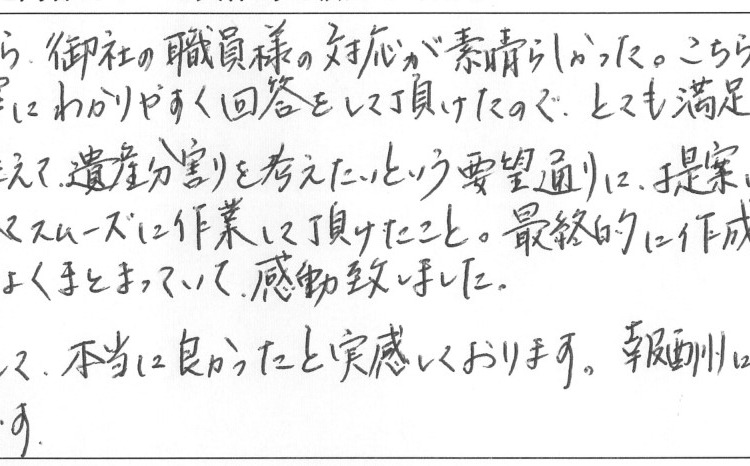 ら、御社の職員様の対応が素晴らしかった。こちら
にわかりやすく回答をして頂けたので、とても満足
えて、遺産分割を考えたいという要望通りに、提案
スムーズに作業して頂けたこと。最終的に作成
よくまとまっていて、感動致しました。
して、本当に良かったと実感しております。報酬に
す。